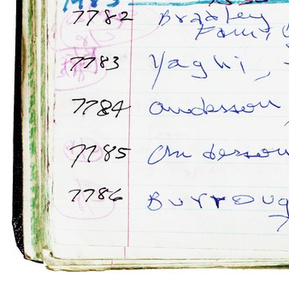 1983
7782 Bradley
Fam,
7783 Yaghi,
7784 anderson,
7785 anderson
7786 Burroug